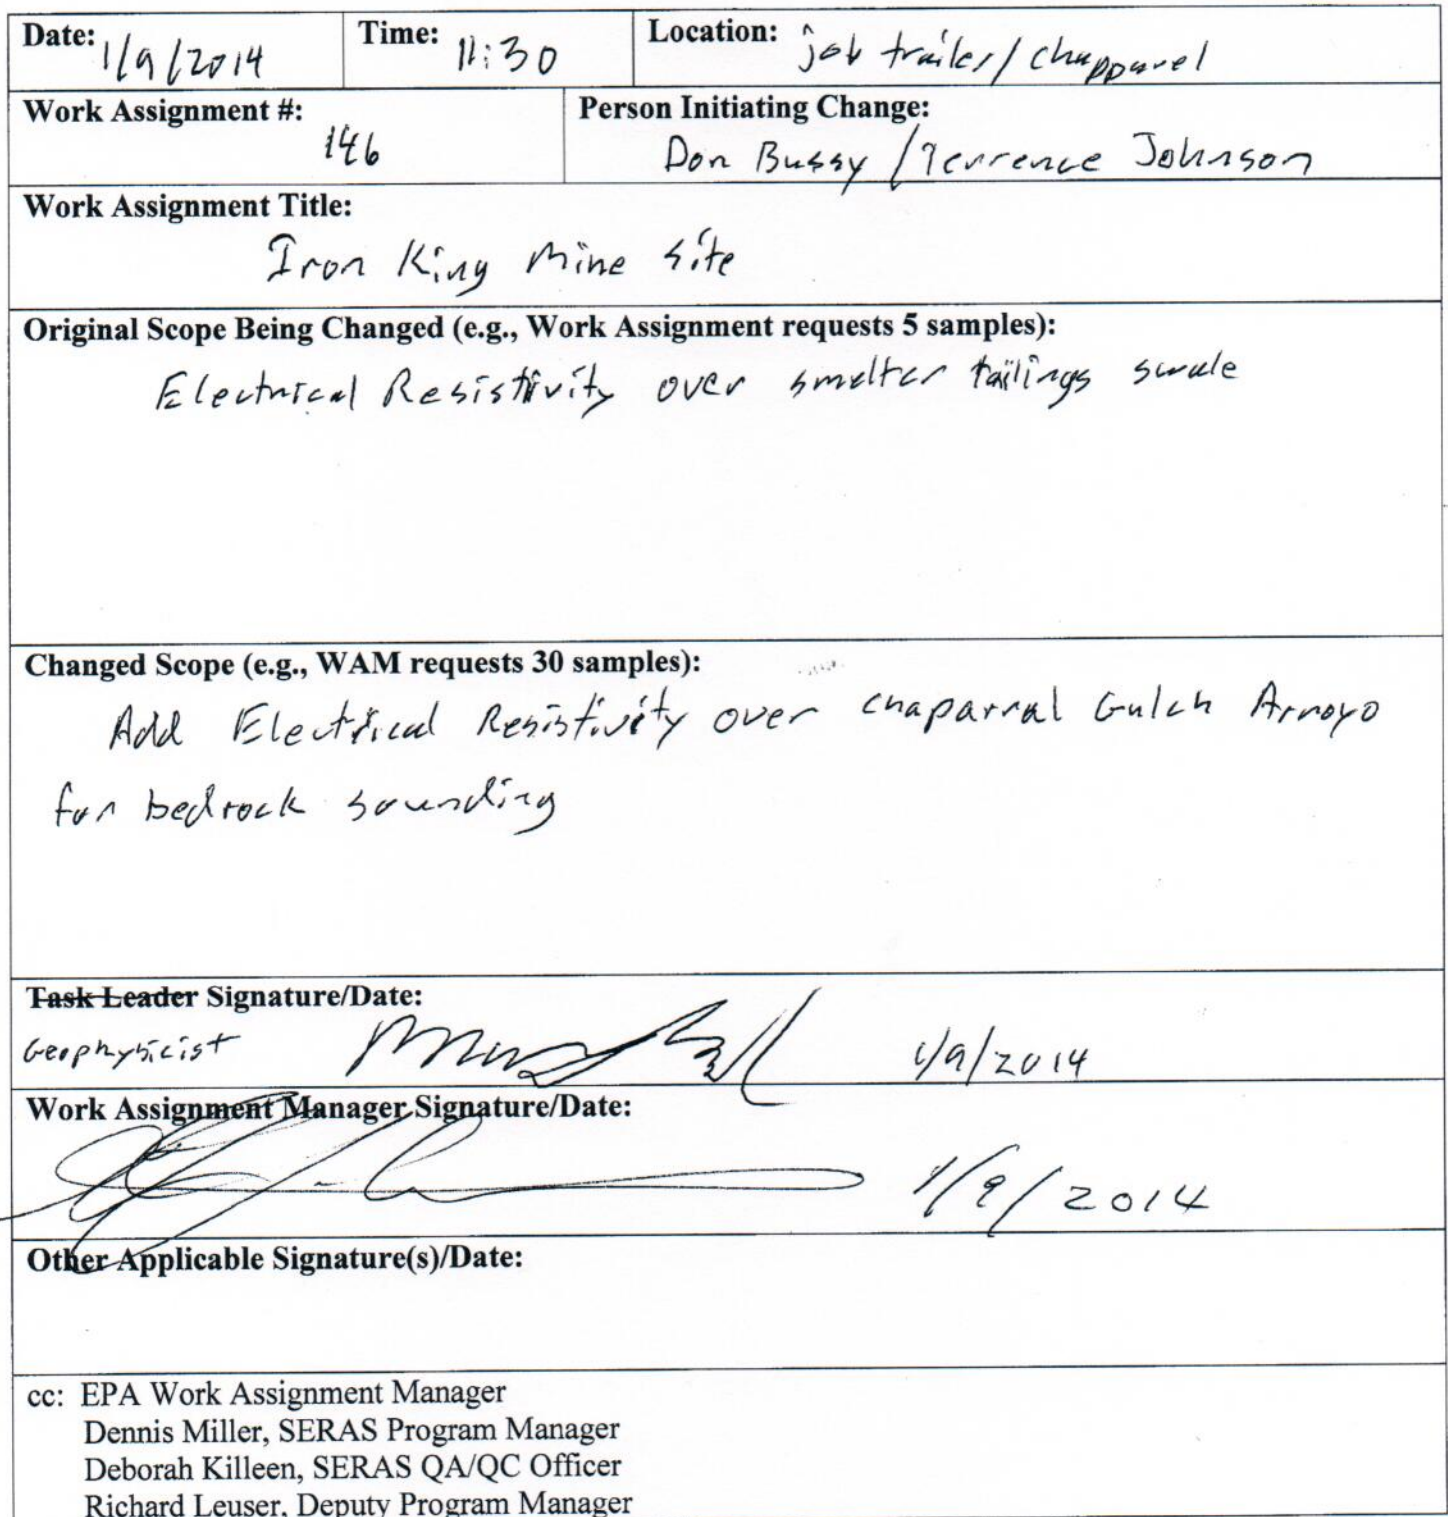 Date: 1/9/2014 Time: 11:30 Location: job trailer/chapparel
Work Assignment #: Person Initiating Change:
146 Don Bussy/Terrence Johnson
Work Assignment Title:
Iron King Mine Site
Original Scope Being Changed (e.g., Work Assignment requests 5 samples):
Electrical Resistivity over smelter tailings swale
Changed Scope (e.g., WAM requests 30 samples):
Add Electrical Resistivity over chaparral Gulch Arroyo
for bedrock sounding
Task Leader Signature/Date:
Geophysicist 1/9/2014
Work Assignment Manager Signature/Date:
1/9/2014
Other Applicable Signature(s)/Date:
cc: EPA Work Assignment Manager
Dennis Miller, SERAS Program Manager
Deborah Killeen, SERAS QA/QC Officer
Richard Leuser, Deputy Program Manager